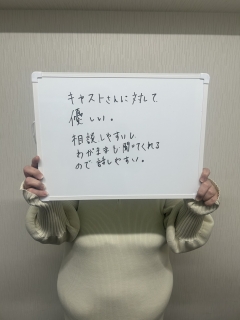 キャストさんに対して
優しい。
相談しやすいし
わがままも聞いてくれる
ので話しやすい。